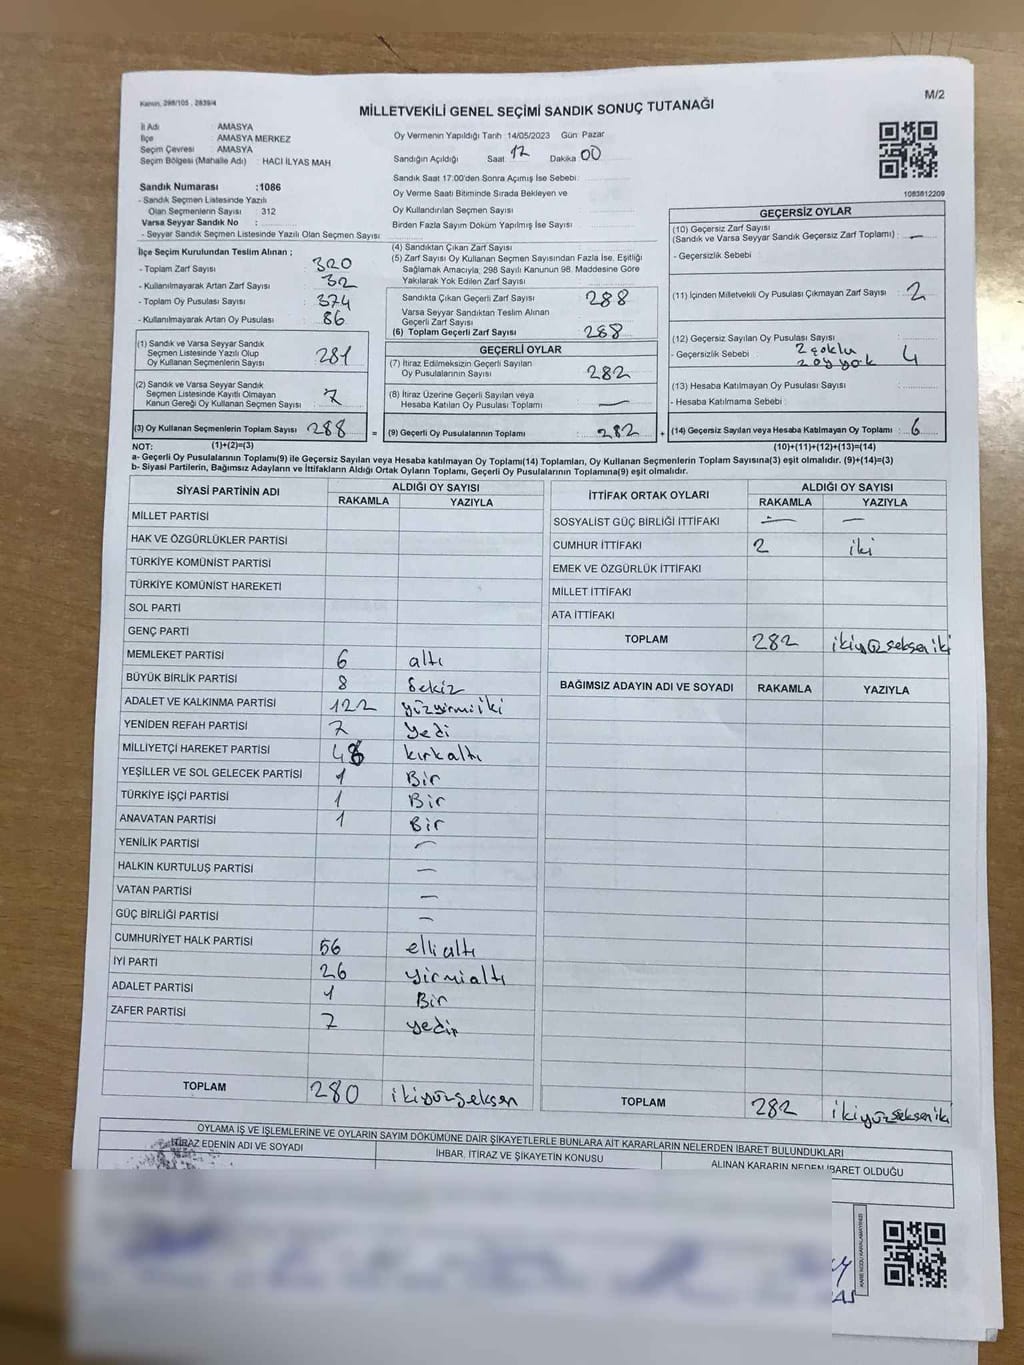 Kanun, 298/105 , 2839/4
M/2
MİLLETVEKİLİ GENEL SEÇİMİ SANDIK SONUÇ TUTANAĞI
İl Adı : AMASYA
İlçe : AMASYA MERKEZ
Seçim Çevresi : AMASYA
Seçim Bölgesi (Mahalle Adı) : HACI İLYAS MAH
Sandık Numarası :1086
- Sandık Seçmen Listesinde Yazılı
Olan Seçmenlerin Sayısı : 312
Varsa Seyyar Sandık No :
- Seyyar Sandık Seçmen Listesinde Yazılı Olan Seçmen Sayısı:
Oy Vermenin Yapıldığı Tarih 14/05/2023 Gün Pazar
Sandığın Açıldığı Saat 17 Dakika 00
Sandık Saat 17:00'den Sonra Açılmış İse Sebebi:
Oy Verme Saati Bitiminde Sırada Bekleyen ve
Oy Kullandırılan Seçmen Sayısı
Birden Fazla Sayım Döküm Yapılmış İse Sayısı
1083612209
İlçe Seçim Kurulundan Teslim Alınan ;
- Toplam Zarf Sayısı : 320
- Kullanılmayarak Artan Zarf Sayısı : 32
- Toplam Oy Pusulası Sayısı : 374
- Kullanılmayarak Artan Oy Pusulası : 86
(1) Sandık ve Varsa Seyyar Sandık
Seçmen Listesinde Yazılı Olup
Oy Kullanan Seçmenlerin Sayısı : 281
(2) Sandık ve Varsa Seyyar Sandık
Seçmen Listesinde Kayıtlı Olmayan
Kanun Gereği Oy Kullanan Seçmen Sayısı : 7
(3) Oy Kullanan Seçmenlerin Toplam Sayısı : 288
(4) Sandıktan Çıkan Zarf Sayısı
(5) Zarf Sayısı Oy Kullanan Seçmen Sayısından Fazla İse, Eşitliği
Sağlamak Amacıyla, 298 Sayılı Kanunun 98. Maddesine Göre
Yakılarak Yok Edilen Zarf Sayısı
Sandıkta Çıkan Geçerli Zarf Sayısı : 288
Varsa Seyyar Sandıktan Teslim Alınan
Geçerli Zarf Sayısı
(6) Toplam Geçerli Zarf Sayısı : 288
GEÇERLİ OYLAR
(7) İtiraz Edilmeksizin Geçerli Sayılan
Oy Pusulalarının Sayısı : 282
(8) İtiraz Üzerine Geçerli Sayılan veya
Hesaba Katılan Oy Pusulası Toplamı : —
= (9) Geçerli Oy Pusulalarının Toplamı : 282
GEÇERSİZ OYLAR
(10) Geçersiz Zarf Sayısı
(Sandık ve Varsa Seyyar Sandık Geçersiz Zarf Toplamı) : —
- Geçersizlik Sebebi :
(11) İçinden Milletvekili Oy Pusulası Çıkmayan Zarf Sayısı : 2
(12) Geçersiz Sayılan Oy Pusulası Sayısı : 4
- Geçersizlik Sebebi : 2 çoklu
2 oy yok
(13) Hesaba Katılmayan Oy Pusulası Sayısı
- Hesaba Katılmama Sebebi :
+ (14) Geçersiz Sayılan veya Hesaba Katılmayan Oy Toplamı : 6
NOT: (1)+(2)=(3) (10)+(11)+(12)+(13)=(14)
a- Geçerli Oy Pusulalarının Toplamı(9) ile Geçersiz Sayılan veya Hesaba katılmayan Oy Toplamı(14) Toplamları, Oy Kullanan Seçmenlerin Toplam Sayısına(3) eşit olmalıdır. (9)+(14)=(3)
b- Siyasi Partilerin, Bağımsız Adayların ve İttifakların Aldığı Ortak Oyların Toplamı, Geçerli Oy Pusulalarının Toplamına(9) eşit olmalıdır.
SİYASİ PARTİNİN ADI ALDIĞI OY SAYISI
RAKAMLA YAZIYLA
MİLLET PARTİSİ
HAK VE ÖZGÜRLÜKLER PARTİSİ
TÜRKİYE KOMÜNİST PARTİSİ
TÜRKİYE KOMÜNİST HAREKETİ
SOL PARTİ
GENÇ PARTİ
MEMLEKET PARTİSİ 6 altı
BÜYÜK BİRLİK PARTİSİ 8 Sekiz
ADALET VE KALKINMA PARTİSİ 122 yüzyirmiiki
YENİDEN REFAH PARTİSİ 7 yedi
MİLLİYETÇİ HAREKET PARTİSİ 46 kırkaltı
YEŞİLLER VE SOL GELECEK PARTİSİ 1 Bir
TÜRKİYE İŞÇİ PARTİSİ 1 Bir
ANAVATAN PARTİSİ 1 Bir
YENİLİK PARTİSİ —
HALKIN KURTULUŞ PARTİSİ —
VATAN PARTİSİ —
GÜÇ BİRLİĞİ PARTİSİ —
CUMHURİYET HALK PARTİSİ 56 elli altı
İYİ PARTİ 26 yirmialtı
ADALET PARTİSİ 1 Bir
ZAFER PARTİSİ 7
TOPLAM 280 ikiyüzseksen
İTTİFAK ORTAK OYLARI ALDIĞI OY SAYISI
RAKAMLA YAZIYLA
SOSYALİST GÜÇ BİRLİĞİ İTTİFAKI — —
CUMHUR İTTİFAKI 2 iki
EMEK VE ÖZGÜRLÜK İTTİFAKI
MİLLET İTTİFAKI
ATA İTTİFAKI
TOPLAM 282 ikiyüzsekseniki
BAĞIMSIZ ADAYIN ADI VE SOYADI RAKAMLA YAZIYLA
TOPLAM 282 ikiyüzsekseniki
OYLAMA İŞ VE İŞLEMLERİNE VE OYLARIN SAYIM DÖKÜMÜNE DAİR ŞİKAYETLERLE BUNLARA AİT KARARLARIN NELERDEN İBARET BULUNDUKLARI
İTİRAZ EDENİN ADI VE SOYADI İHBAR, İTİRAZ VE ŞİKAYETİN KONUSU ALINAN KARARIN NEDEN İBARET OLDUĞU
KARE KODU KARALAMAYINIZ!